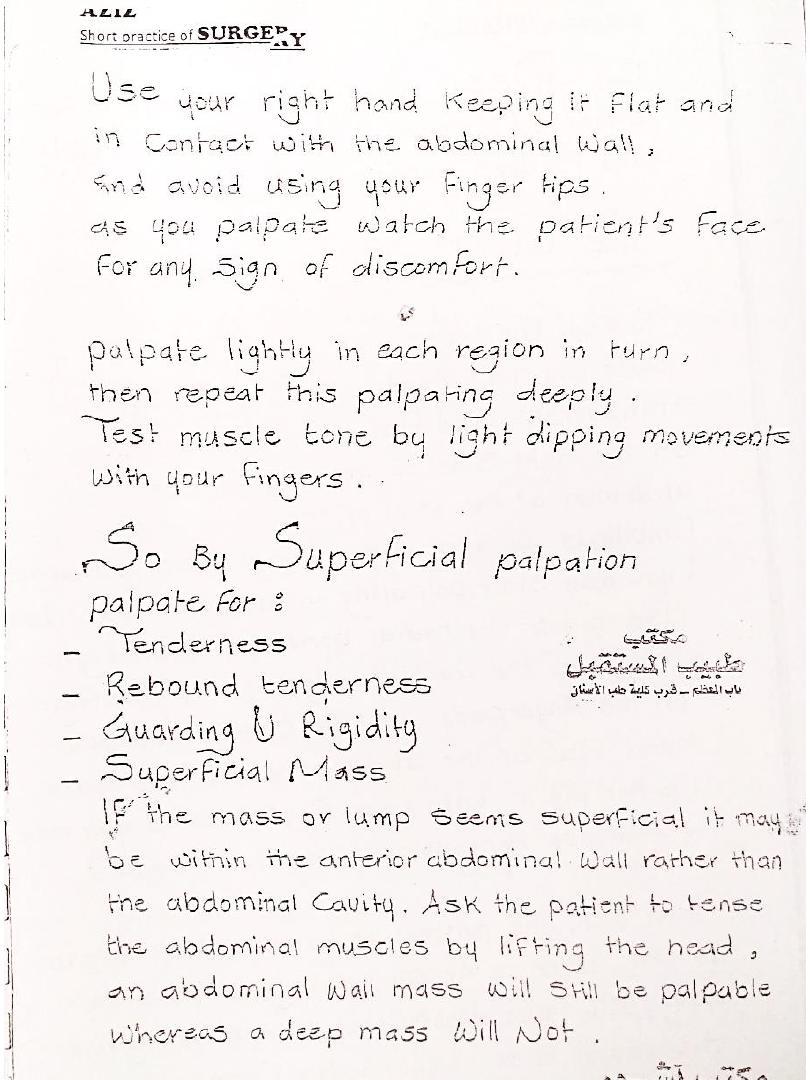 AZIZ
Short practice of SURGERY
Use your right hand Keeping it Flat and
in Contact with the abdominal Wall,
and avoid using your Finger tips.
as you palpate watch the patient's Face
For any Sign of discomfort.
palpate lightly in each region in turn,
then repeat this palpating deeply.
Test muscle tone by light dipping movements
With your Fingers.
So By Superficial palpation
palpate For :
- Tenderness
- Rebound tenderness
مكتب
طبيب المستقبل
باب المعظم - قرب كلية طب الأسنان
- Guarding & Rigidity
- Superficial Mass
IF the mass or lump seems superficial it may
be within the anterior abdominal Wall rather than
the abdominal Cavity. Ask the patient to tense
the abdominal muscles by lifting the head,
an abdominal Wall mass will still be palpable
Whereas a deep mass Will Not.